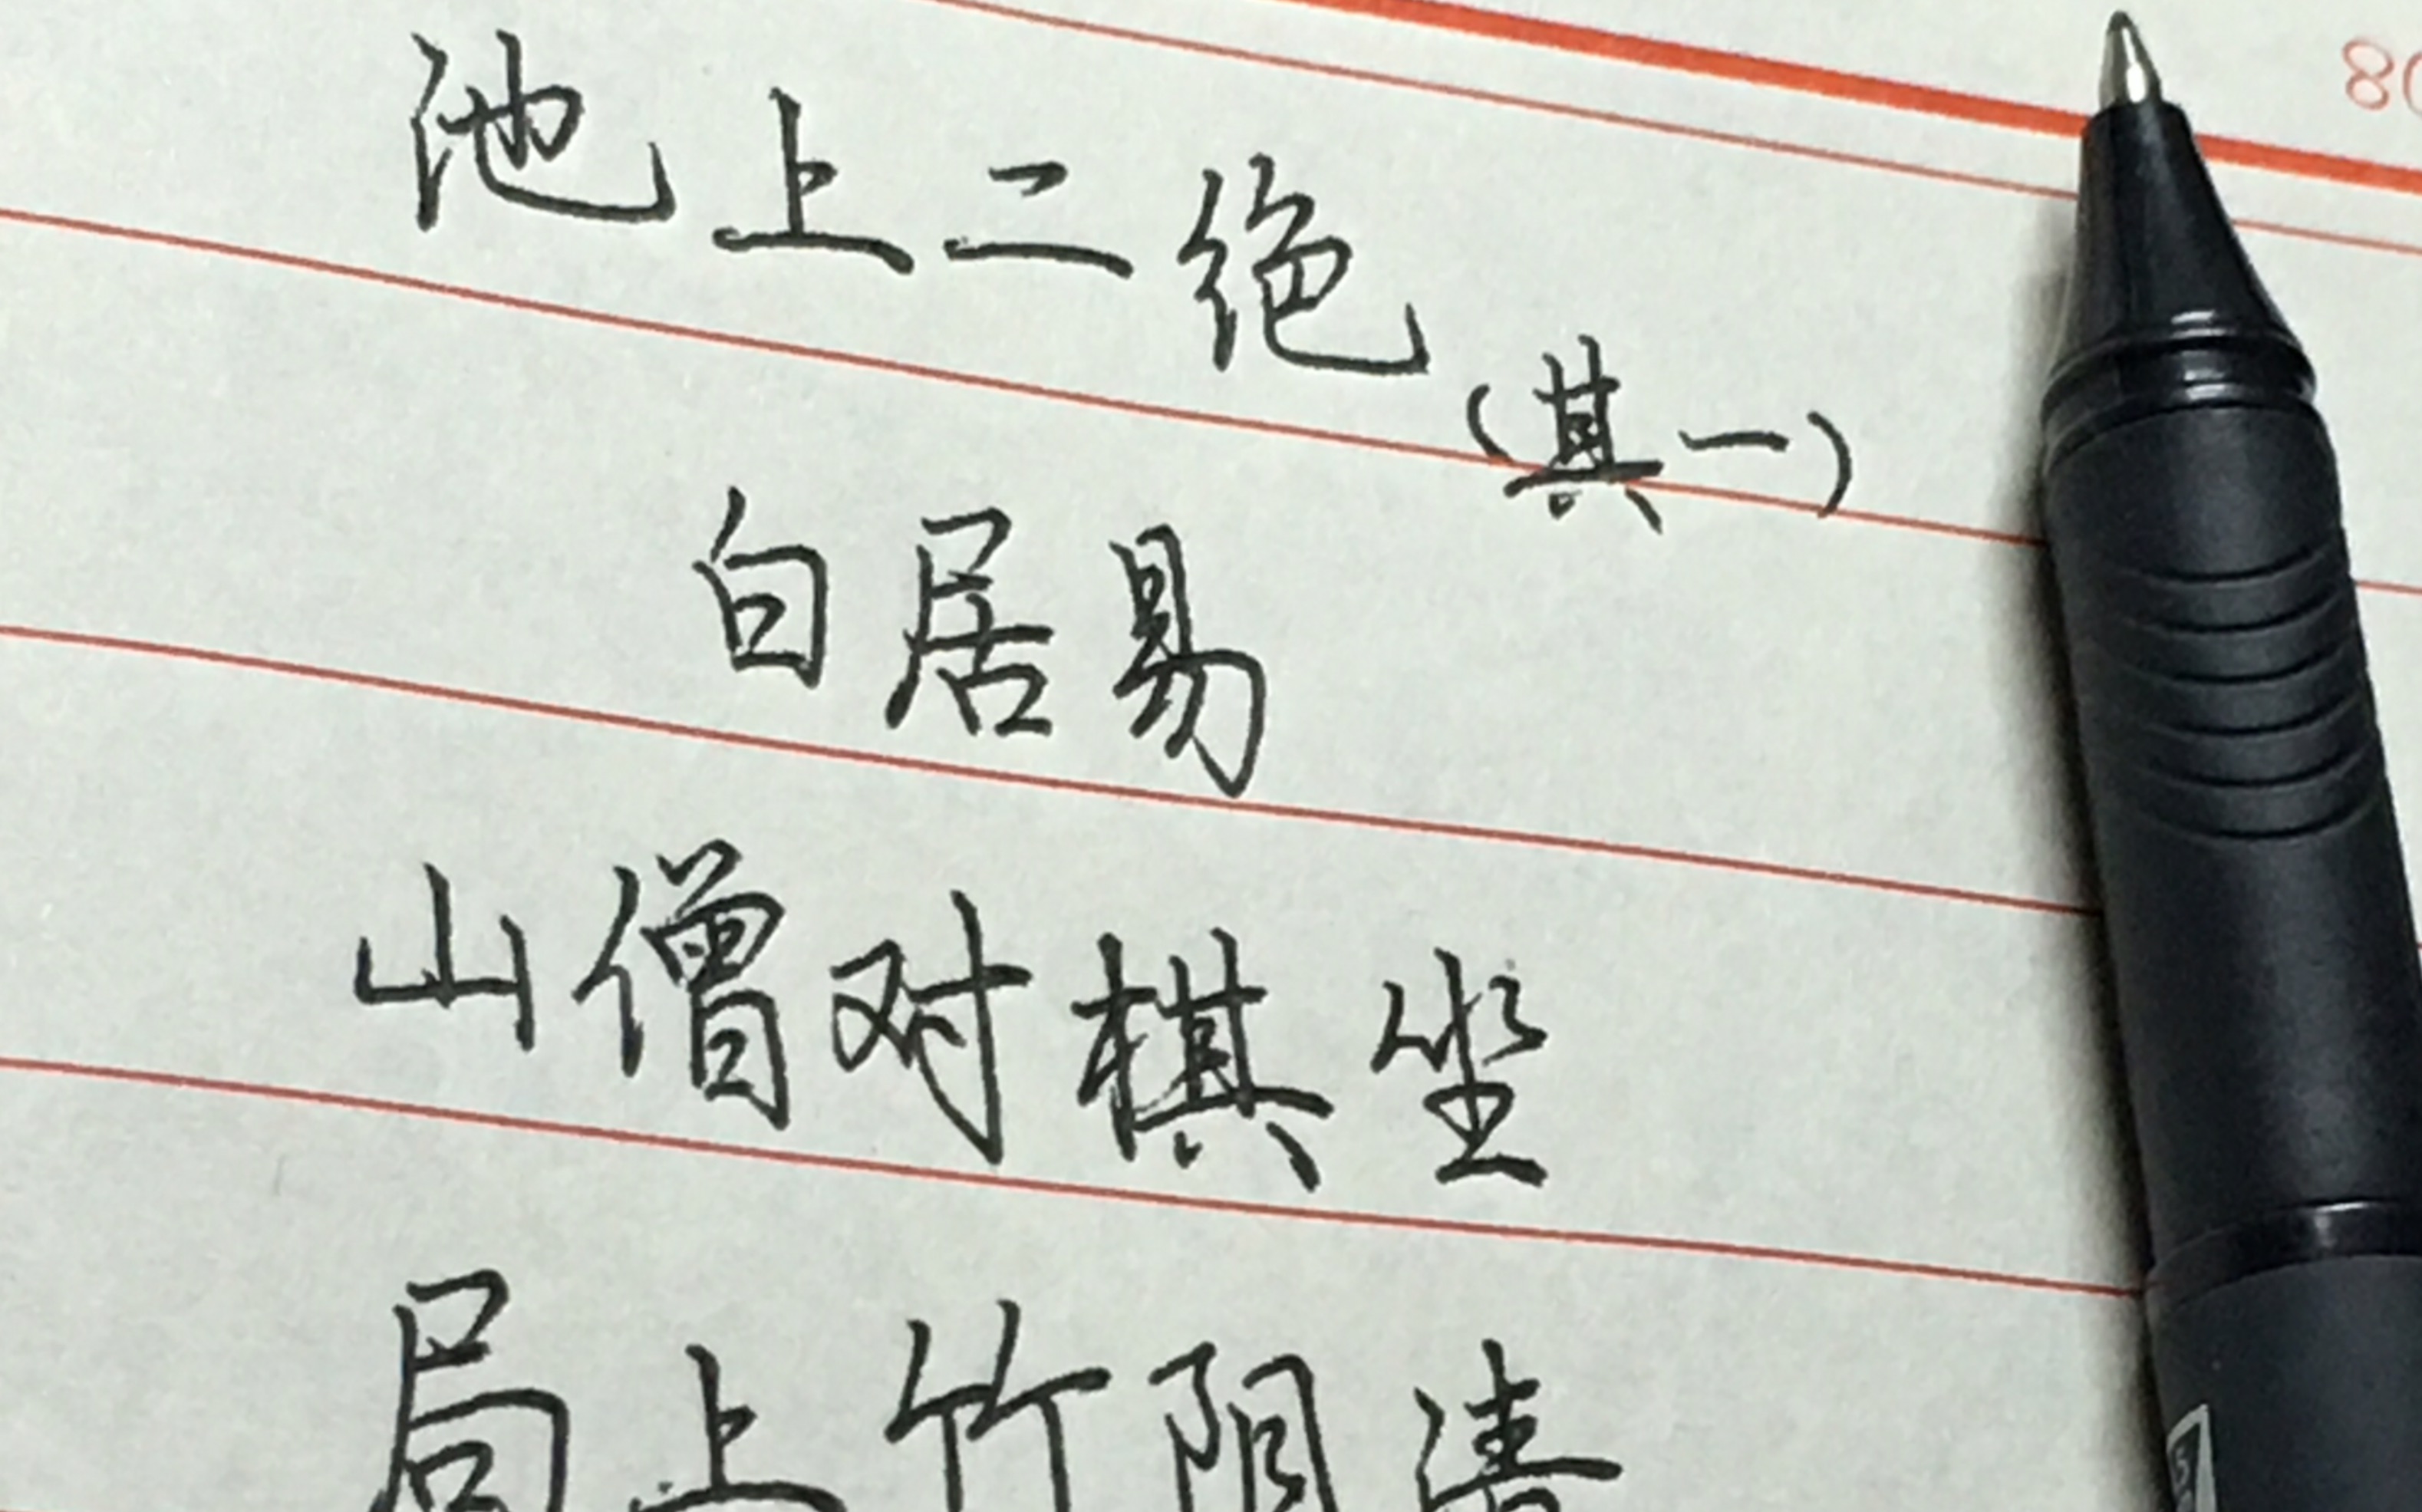 池上二绝(其一)
白居易
山僧对棋坐
局上竹阴清